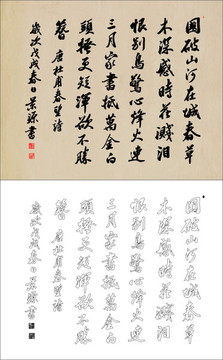 國破山河在城春草
木深感時花濺泪
恨別鳥驚心烽火連
三月家書抵萬金白
頭搔更短渾欲不勝
簪 唐杜甫春望詩
歲次戊戌春日景源書
國破山河在城春草
木深感時花濺泪
恨別鳥驚心烽火連
三月家書抵萬金白
頭搔更短渾欲不勝
簪 唐杜甫春望詩
歲次戊戌春日景源書